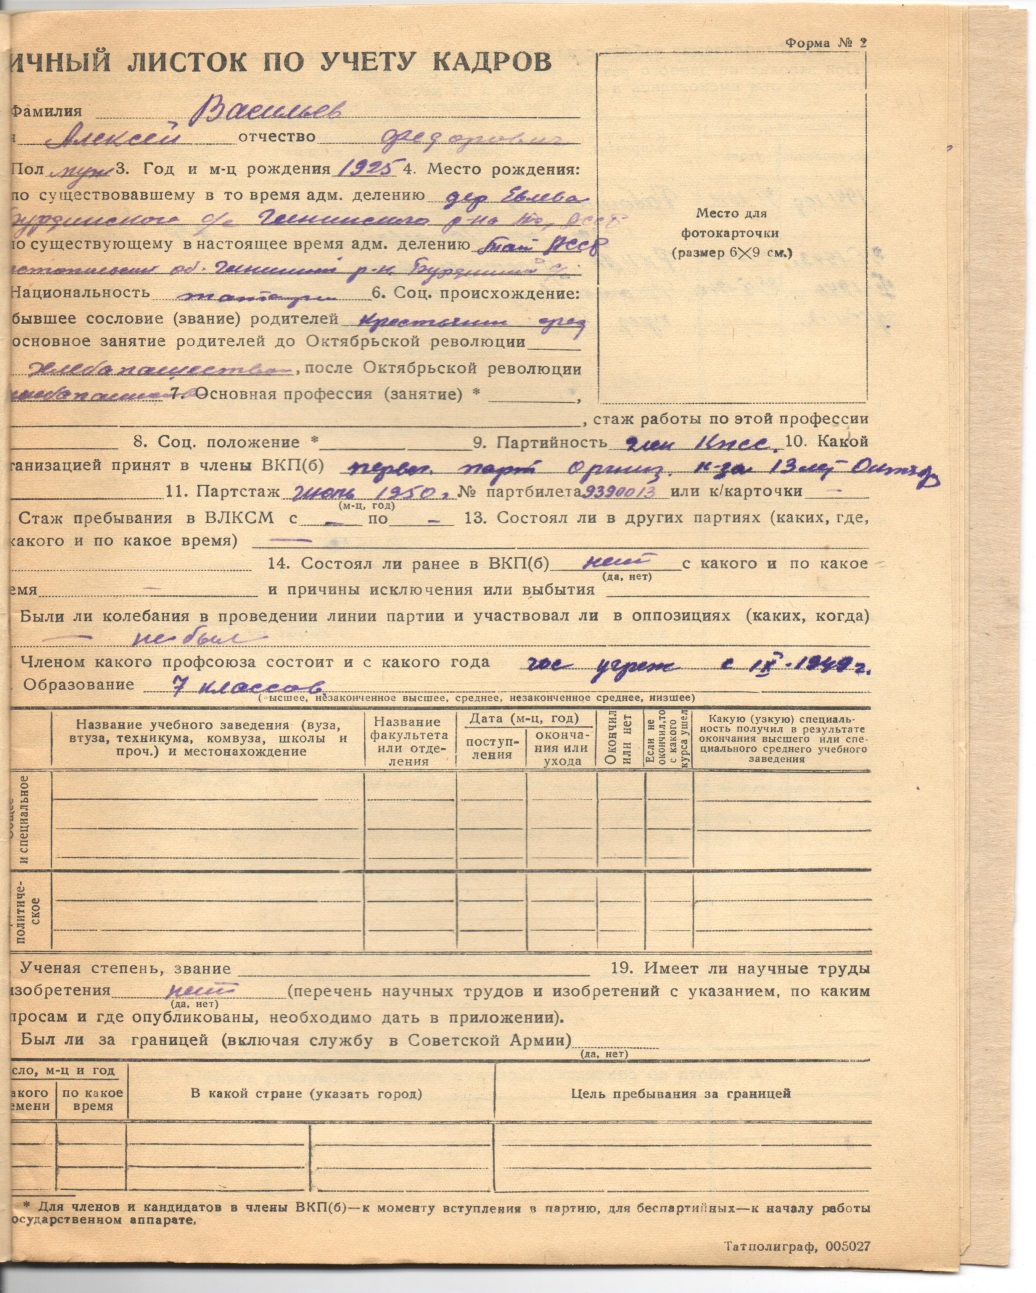 Форма № 2
ИЧНЫЙ ЛИСТОК ПО УЧЕТУ КАДРОВ
Фамилия Васильев
Алексей отчество Федорович
Пол муж 3. Год и м-ц рождения 1925 4. Место рождения:
по существовавшему в то время адм. делению дер Евлева
Бурдинского с/с р-на
о существующему в настоящее время адм. делению АССР
об. р-н
Национальность 6. Соц. происхождение:
бывшее сословие (звание) родителей
основное занятие родителей до Октябрьской революции
хлебопашество, после Октябрьской революции
7. Основная профессия (занятие) * ,
, стаж работы по этой профессии
8. Соц. положение * 9. Партийность член КПСС. 10. Какой
ганизацией принят в члены ВКП(б) перви. парт Организ. к-за 13 лет Октябр
11. Партстаж Июль 1950 г. № партбилета 9390013 или к/карточки —
(м-ц, год)
Стаж пребывания в ВЛКСМ с — по — 13. Состоял ли в других партиях (каких, где,
какого и по какое время) —
14. Состоял ли ранее в ВКП(б) нет с какого и по какое
(да, нет)
емя — и причины исключения или выбытия
Были ли колебания в проведении линии партии и участвовал ли в оппозициях (каких, когда)
— не был
Членом какого профсоюза состоит и с какого года гос учреж с IX-1949 г.
Образование 7 классов
(высшее, незаконченное высшее, среднее, незаконченное среднее, низшее)
Название учебного заведения (вуза, втуза, техникума, комвуза, школы и проч.) и местонахождение
Название факультета или отделения
Дата (м-ц, год)
поступ-
ления
оконча-
ния или
ухода
Окончил
или нет
Если не
окончил, то
с какого
курса ушел
Какую (узкую) специаль-
ность получил в результате
окончания высшего или спе-
циального среднего учебного
заведения
Общее
и специальное
политиче-
ское
Ученая степень, звание 19. Имеет ли научные труды
изобретения нет (перечень научных трудов и изобретений с указанием, по каким
(да, нет)
просам и где опубликованы, необходимо дать в приложении).
Был ли за границей (включая службу в Советской Армии)
(да, нет)
сло, м-ц и год
акого
емени
по какое
время
В какой стране (указать город)
Цель пребывания за границей
* Для членов и кандидатов в члены ВКП(б)—к моменту вступления в партию, для беспартийных—к началу работы
осударственном аппарате.
Татполиграф, 005027
Место для
фотокарточки
(размер 6×9 см.)